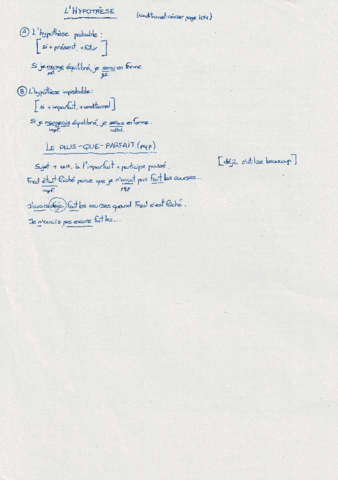 L'HYPOTHÈSE (conditionnel réviser page 104)
A L'hypothèse probable :
[si + présent, + futur]
Si je mange équilibré, je serai en forme.
prt. fut.
B L'hypothèse improbable :
[si + imparfait, + conditionnel]
Si je mangeais équilibré, je serais en forme.
impf.
LE PLUS-QUE-PARFAIT (pqp)
Sujet + aux. à l'imparfait + participe passé. [déjà s'utilise beaucoup]
Fred était fâché parce que je n'avais pas fait les courses...
impf. pqp
J'avais déjà fait les courses quand Fred s'est fâché.
Je n'avais pas encore fait les...